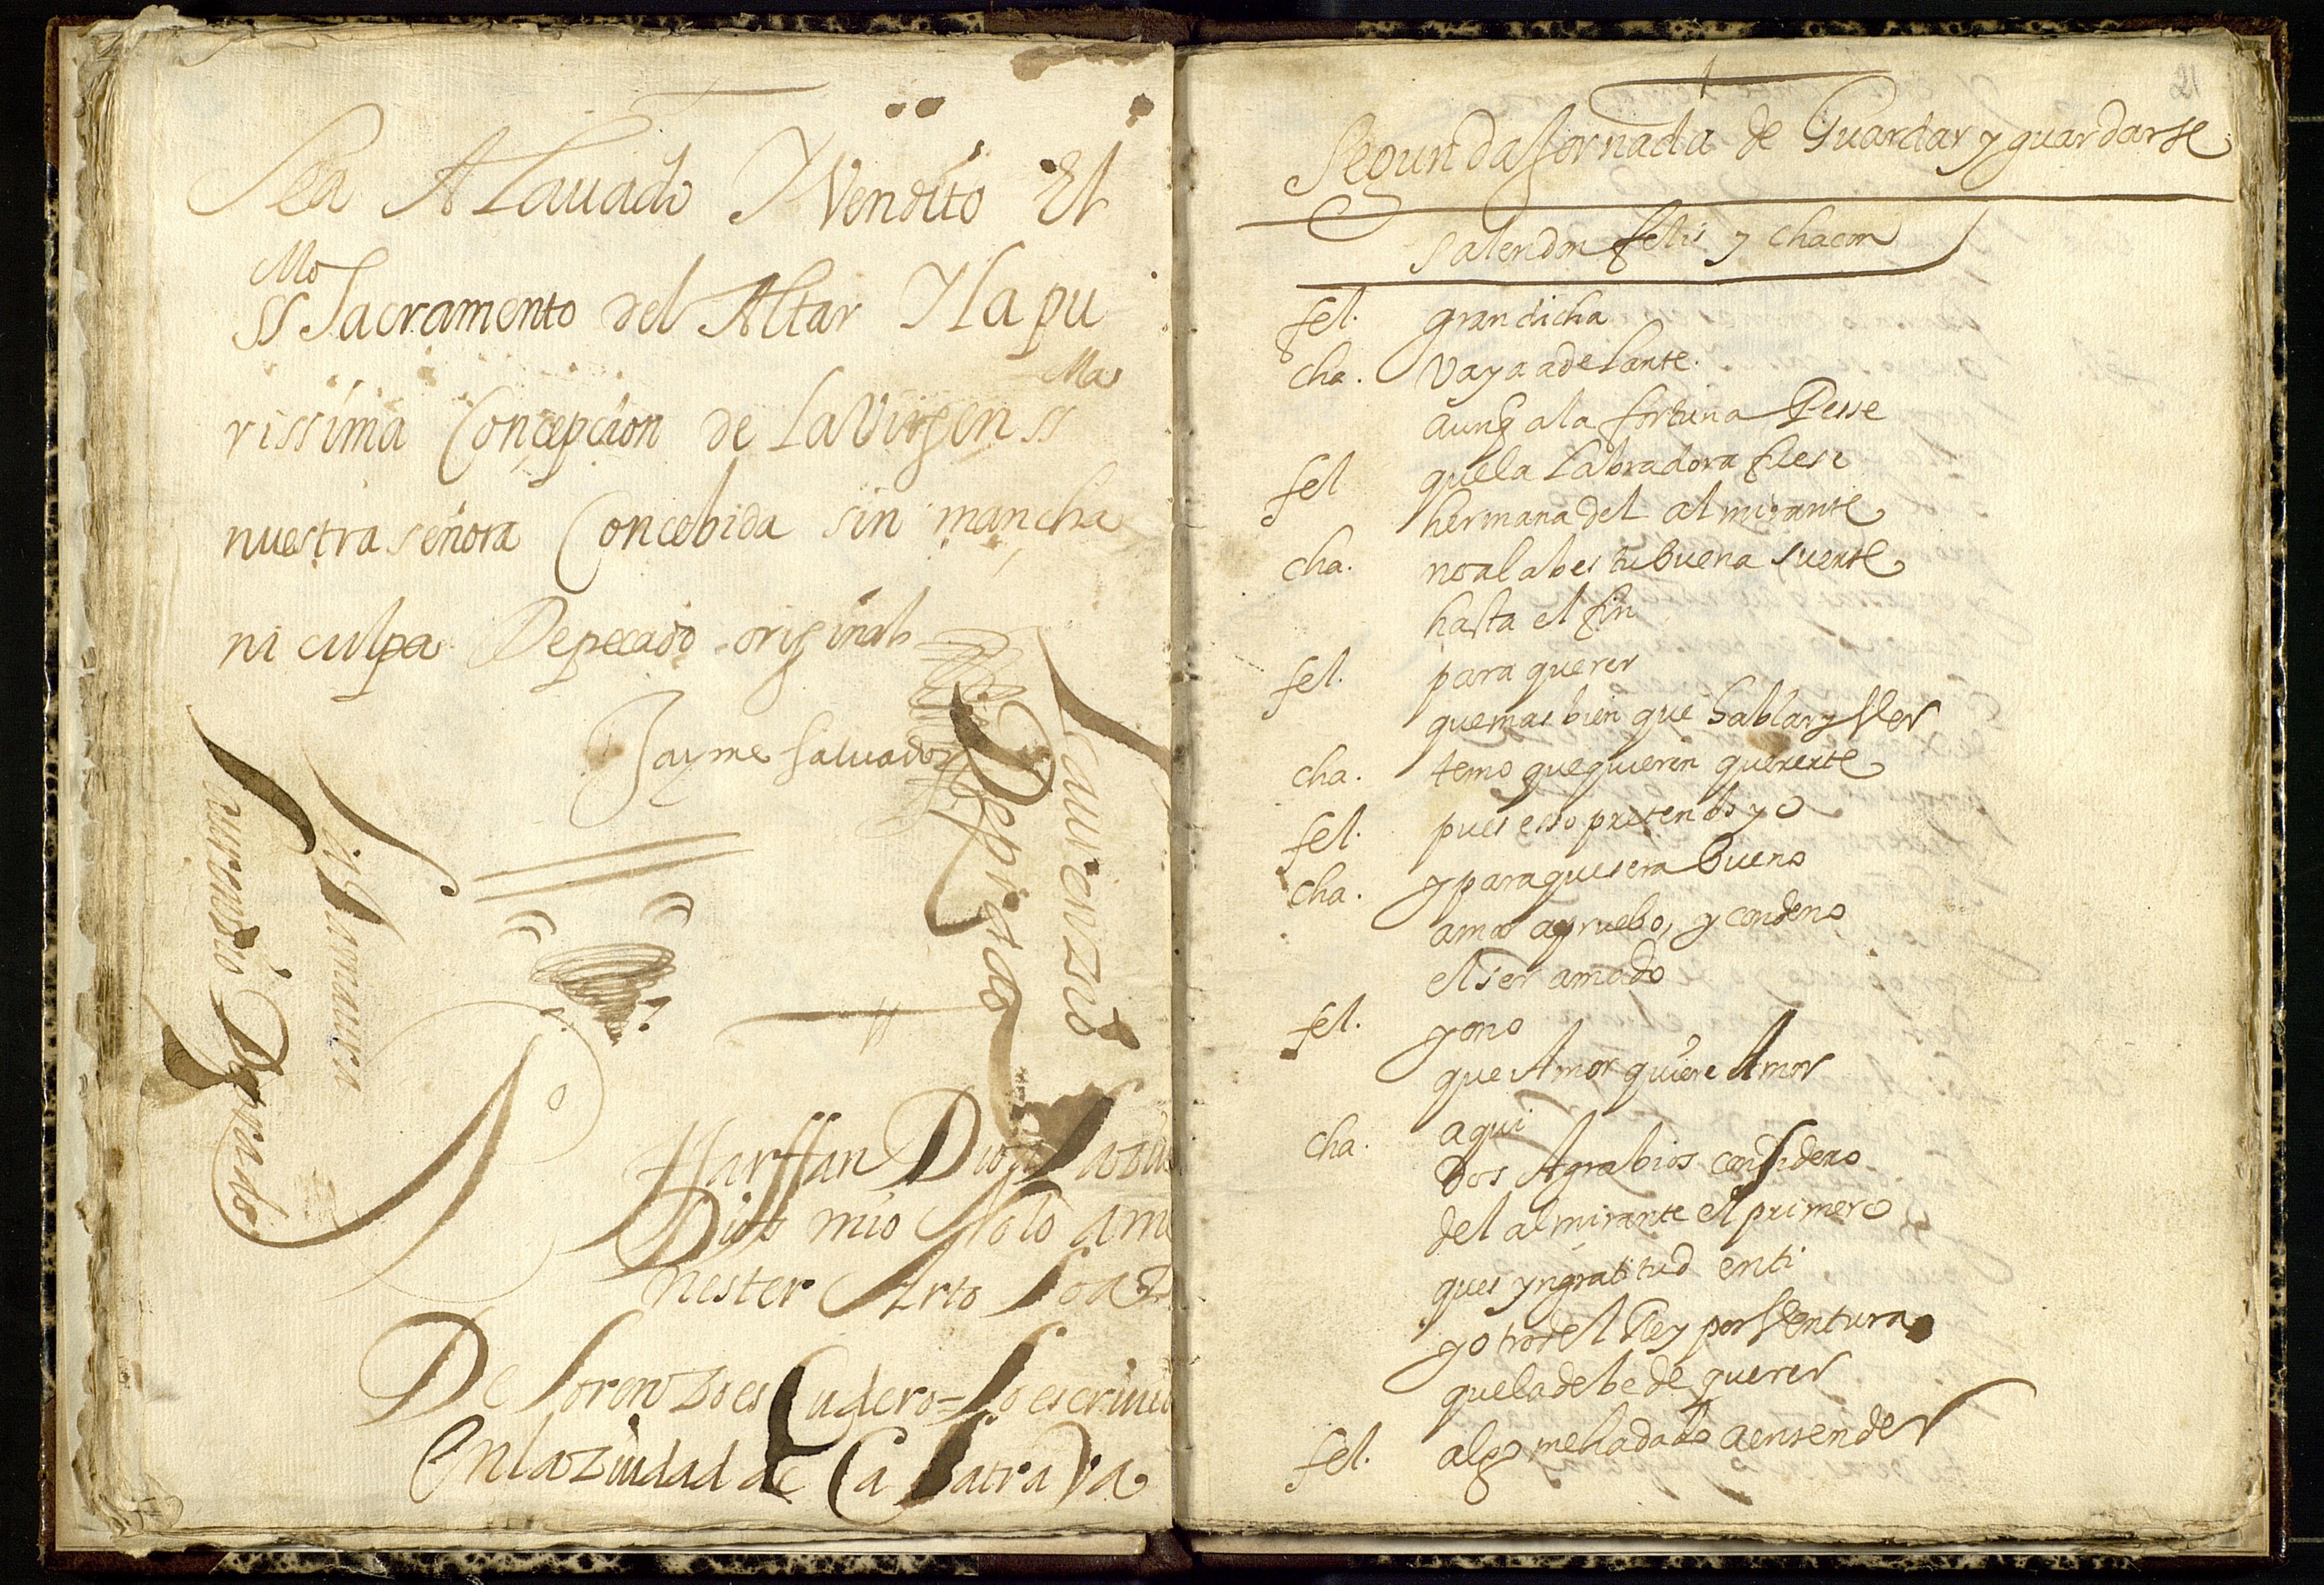 Sea Alauado Y Vendito El
SSmo Sacramento del Altar Y la pu
rissima Concepcion de la Virgen SSma
nuestra señora Concebida sin mancha
ni culpa De pecado original
Jayme Saluador
Laurenzio
Laurenzio De
Dios mio Solo ame
nester
De Lorenzo escudero = Lo escriuio
En la ziudad de Calatrava
21
Segunda Jornada de Guardar y guardarse
salen don felis y chacon
fel. gran dicha
cha. vaya adelante.
aunq a la fortuna Pesse
fel que la Labradora fuese
hermana del almirante
cha. no alabes tu buena suerte
hasta el fin
fel. para querer
que mas bien que hablar y Ver
cha. temo que quieren quererte
fel. pues esso pretendo yo
cha. y para que sera bueno
amar apruebo, y condeno
el ser amado
fel. yo no
que Amor quiere Amor
cha. aqui
dos Agrabios considero
del almirante el primero
ques yngratitud en ti
y otro del Rey por Ventura
que la debe de querer
fel. algo me ha dado a entender